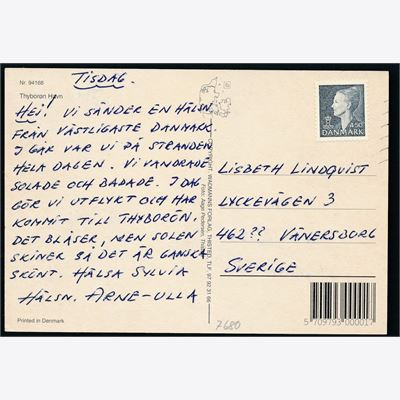 Nr. 94168
Thyborøn Havn
TISDAG.
HEJ! VI SÄNDER EN HÄLSN.
FRÅN VÄSTLIGASTE DANMARK.
I GÅR VAR VI PÅ STRANDEN
HELA DAGEN. VI VANDRADE
SOLADE OCH BADADE. I DAG
GÖR VI UTFLYKT OCH HAR
KOMMIT TILL THYBORÖN.
DET BLÅSER, MEN SOLEN
SKINER SÅ DET ÄR GANSKA
SKÖNT. HÄLSA SYLVIA
HÄLSN. ARNE-ULLA
Printed in Denmark
FORLAG, THISTED, TLF. 97 92 31 66
450
DANMARK
LISBETH LINDQUIST
LYCKEVÄGEN 3
462?? VÄNERSBORG
SVERIGE
7680
5 709793 000017